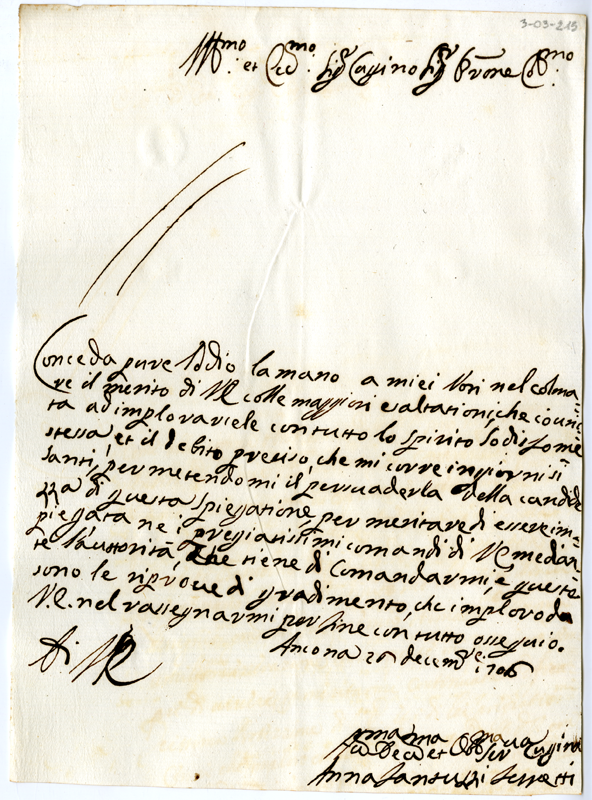 3-03-215
Ill.mo et Ecc.mo Sig.r Cugino Sig.r P̄rone Col.mo
Conceda pure Iddio la mano a miei Voti nel colma=
re il merito di VE colle maggiori esaltationi, che
ta ad implorariele con tutto lo spirito
stessa, et il debito preciso, che mi corre in giorni sì
santi, permetendomi il persuaderla della candide
zza di questa spiegatione, per meritare di essere im=
piegata ne i pregiatissimi comandi di VE median=
te l'auttorità, che tiene di Comandarmi, e queste
sono le riprove di gradimento, che imploro da
V.E. nel rassegnarmi per fine con tutto ossequio.
Ancona 26 decem.e 1706
Di VE
et Ser Cugina
Anna